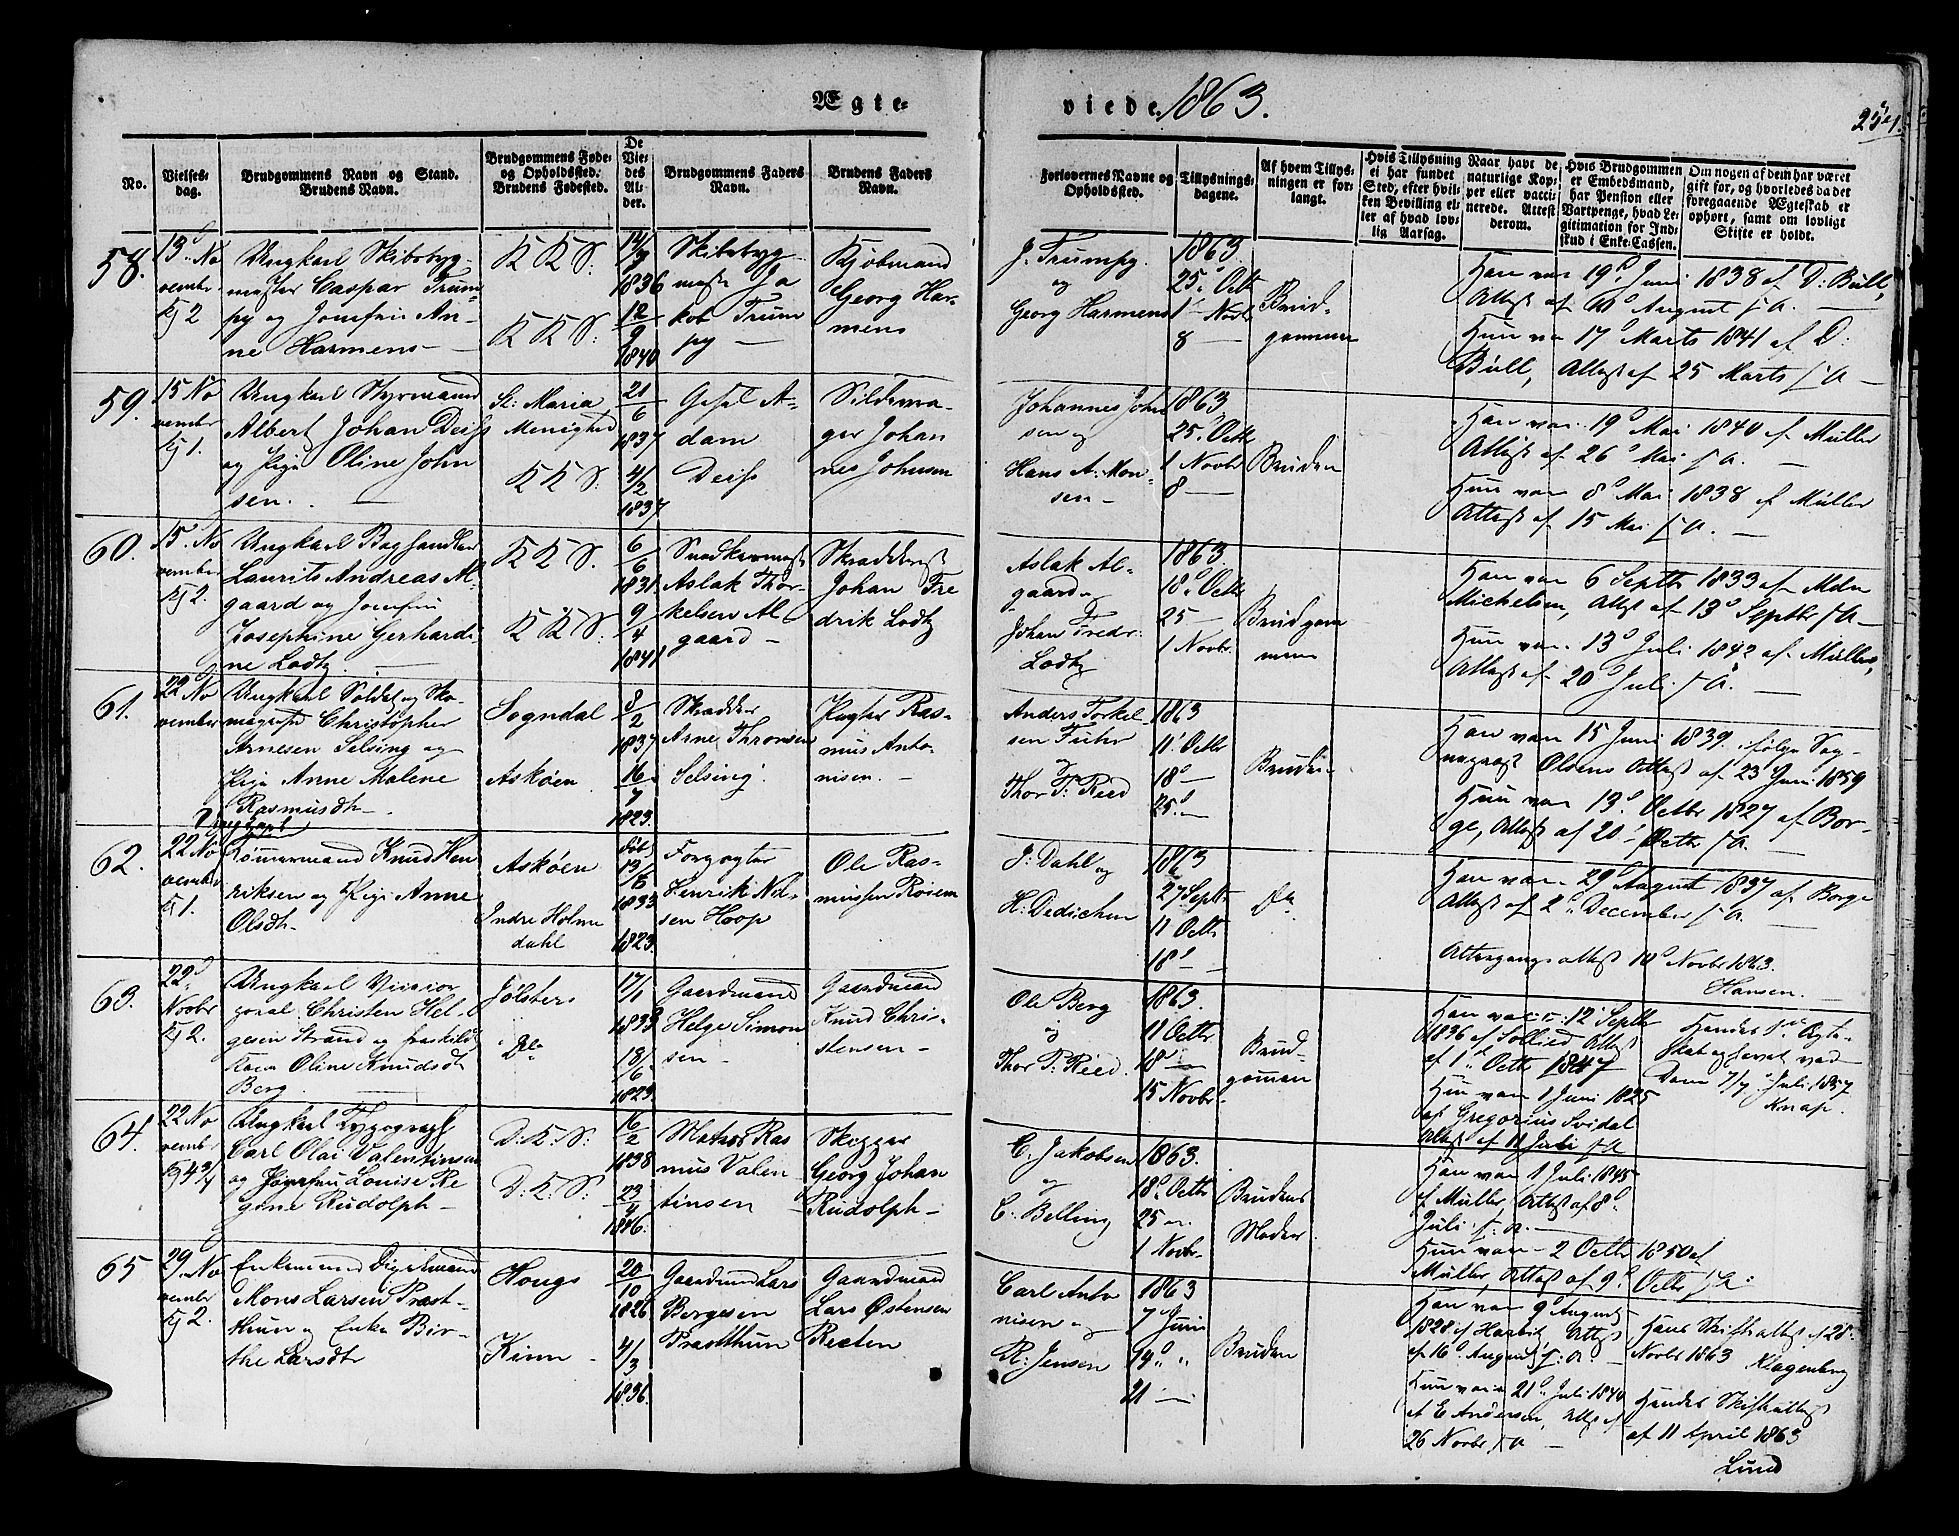 Ægte-
viede 1863.
No.
Vielses-
dag.
Brudgommens Navn og Stand.
Brudens Navn.
Brudgommens Føde-
og Opholdssted.
Brudens Fødested.
De
Vie-
des
Al-
der.
Brudgommens Faders
Navn.
Brudens Faders
Navn.
Forlovernes Navne og
Opholdssted.
Tillysnings-
dagene.
Af hvem Tillys-
ningen er for-
langt.
Hvis Tillysning
ei har fundet
Sted, efter hvil-
ken Bevilling el-
ler af hvad lov-
lig Aarsag.
Naar havt de
naturlige Kop-
per eller vacci-
nerede. Attest
derom.
Hvis Brudgommen
er Embedsmand,
har Pension eller
Vartpenge, hvad Le-
gitimation for Ind-
skud i Enke-Cassen.
Om nogen af dem har været
gift før, og hvorledes da det
foregaaende Ægteskab er
ophørt, samt om lovligt
Skifte er holdt.
58.
13d No
vember
Kj 2
Ungkarl Skibsbyg-
mester Caspar Trum-
py og Jomfru An-
ne Harmens
KKS:
KKS:
14/7
1836
12/9
1840
Skibsbyg
mester Ja
kob Trum
py
Kjøbmand
Georg Har-
mens
J. Trumpy
og
Georg Harmens
1863
25d Octb
1 Novbr
8
Brud-
gommen
Han var 19d Juni 1838 af D: Büll,
Attest af August s. A.
Hun var 17 Marts 1841 af D:
Büll, Attest af 25 Marts s A
59.
15 No
vember
Kj 1.
Ungkarl Styrmand
Albert Johan Deiss
og Pige Oline John
sen.
St: Maria
Menighed
KKS:
21/6
1837
4/2
1837
Gesel A-
dam
Deiss
Sildema-
ger Johan
nes Johnsen
Johannes John
sen og
Hans A: Mon-
sen
1863
25d Octb
1 Novbr
8
Bruden
Han var 19d Mai 1840 af Müller
Attest af 26d Mai s A.
Hun var 8d Mai 1838 af Müller
Attest af 15 Mai s A.
60.
15. No
vember
Kj 2.
Ungkarl Boghandler
Laurits Andreas Al-
gaard og Jomfru
Josephine Gerhardi-
ne Lodtz
KKS:
KKS:
6/6
1831
9/4
1841
Snedkermest
Aslak Thor-
kelsen Al
gaard
Skrædderm
Johan Fre
drik Lodtz
Aslak Al-
gaard og
Johan Fredr:
Lodtz
1863
18d Octb
25
1 Novbr
Brudgom
men
Han var 6 Septbr 1833 af Mdm
Michelsen, Attest af 13d Septbr s A
Hun var 13d Juli 1842 af Müller,
Attest af 20d Juli s A.
61.
22 No
vember
Ungkarl Soldat og Sko-
magersd Christopher
Arnesen Selsing og
Pige Anne Malene
Rasmusdtr
Sogndal
Askøen
8/2
1837
16/7
1823.
Skrædder
Arne Thronsen
Selsing
Pagter Ras-
mus Anto-
nisen.
Anders Torkel-
sen Fuhr
Thor T: Reed
1863
11d Octb
18d
25d
Bruden
Han var 15 Juni 1839 ifølge Sog-
nepræst Olsens Attest af 23 Juni 1859
Hun var 13d Octbr 1827 af Bor-
ge, Attest af 20d Octbr s A.
62.
22 No
vember
Kj 1.
Tømmermand Knud Hen
riksen og Pige Anne
Olsdtr
Askøen
Indre Holme
dahl
Feb.
13/8
1833
1823.
Forpagter
Henrik Nil-
sen Hoop
Ole Ras-
mussen Risem
J: Dahl og
H: Dedichen
1863
27 Septbr
11 Octb
18d
Do
Han var 29d August 1837 af Borge
Attest af 2d December s A.
Altergangsattest 10d Novbr 1863.
Hansen.
63.
22d
Novbr
Kj 2.
Ungkarl Viceior
goral Christen Hel-
gesen Strand og fraskildt
Kone Oline Knudsdt
Berg
Jølster
Do
17/1
1833
18/6
1823
Gaardmand
Helge Simon
sen
Gaardmand
Knud Chri-
stensen
Ole Berg
og
Thor T: Reed.
1863.
11 Octbr
18d
15 Novbr
Brud-
gommen
Han var 12 Septbr
1836 af Sollied Attest
af 1d Octbr 1847
Hun var 1 Juni 1825
af Gregorius Svidal
Attest af 11 Juli s A
Hendes 1ste Ægte-
skab ophævet ved
Dom 7/7 Juli 1857
Knap.
64.
22 No
vember
Kj 4 3/4
Ungkarl Typograph
Carl Olai Valentinsen
og Jomfru Louise Re
gine Rudolph
D: K: S:
D: K: S:
16/2
1838
23/4
1846.
Matros Ras
mus Valen
tinsen
Skipper
Georg Johan
Rudolph
C. Jakobsen
og
C. Belling
1863.
18d Octbr
25
1 Novbr
Brudens
Moder
Han var 1 Juli 1845
af Müller, Attest af 8d
Juli s. A.
Hun var 2 Octbr 1850 af
Müller, Attest af 9d Octbr s A.
65
29. No
vember
Kj 2.
Enkemand
Mons Larsen Præst-
thun og Enke Bir-
the Larsdtr
Hougs
Kinn
20/10
1826
4/3
1836.
Gaardmd Lars
Børgesen
Præstthun
Gaardmand
Lars Østensen
Reeten
Carl Anto
nisen og
R: Jensen
1863
7 Juni
14d
21
Bruden
Han var 9d August
1828 af Harbitz, Attest
af 16d August s: A.
Hun var 21d Juli 1840
af E Andersen, Attest af
26 Novbr s A
Hans Skifteattest af 28d
Novbr 1863 Klagenberg
Hendes Skifteattest
af 11 April 1863
Lund